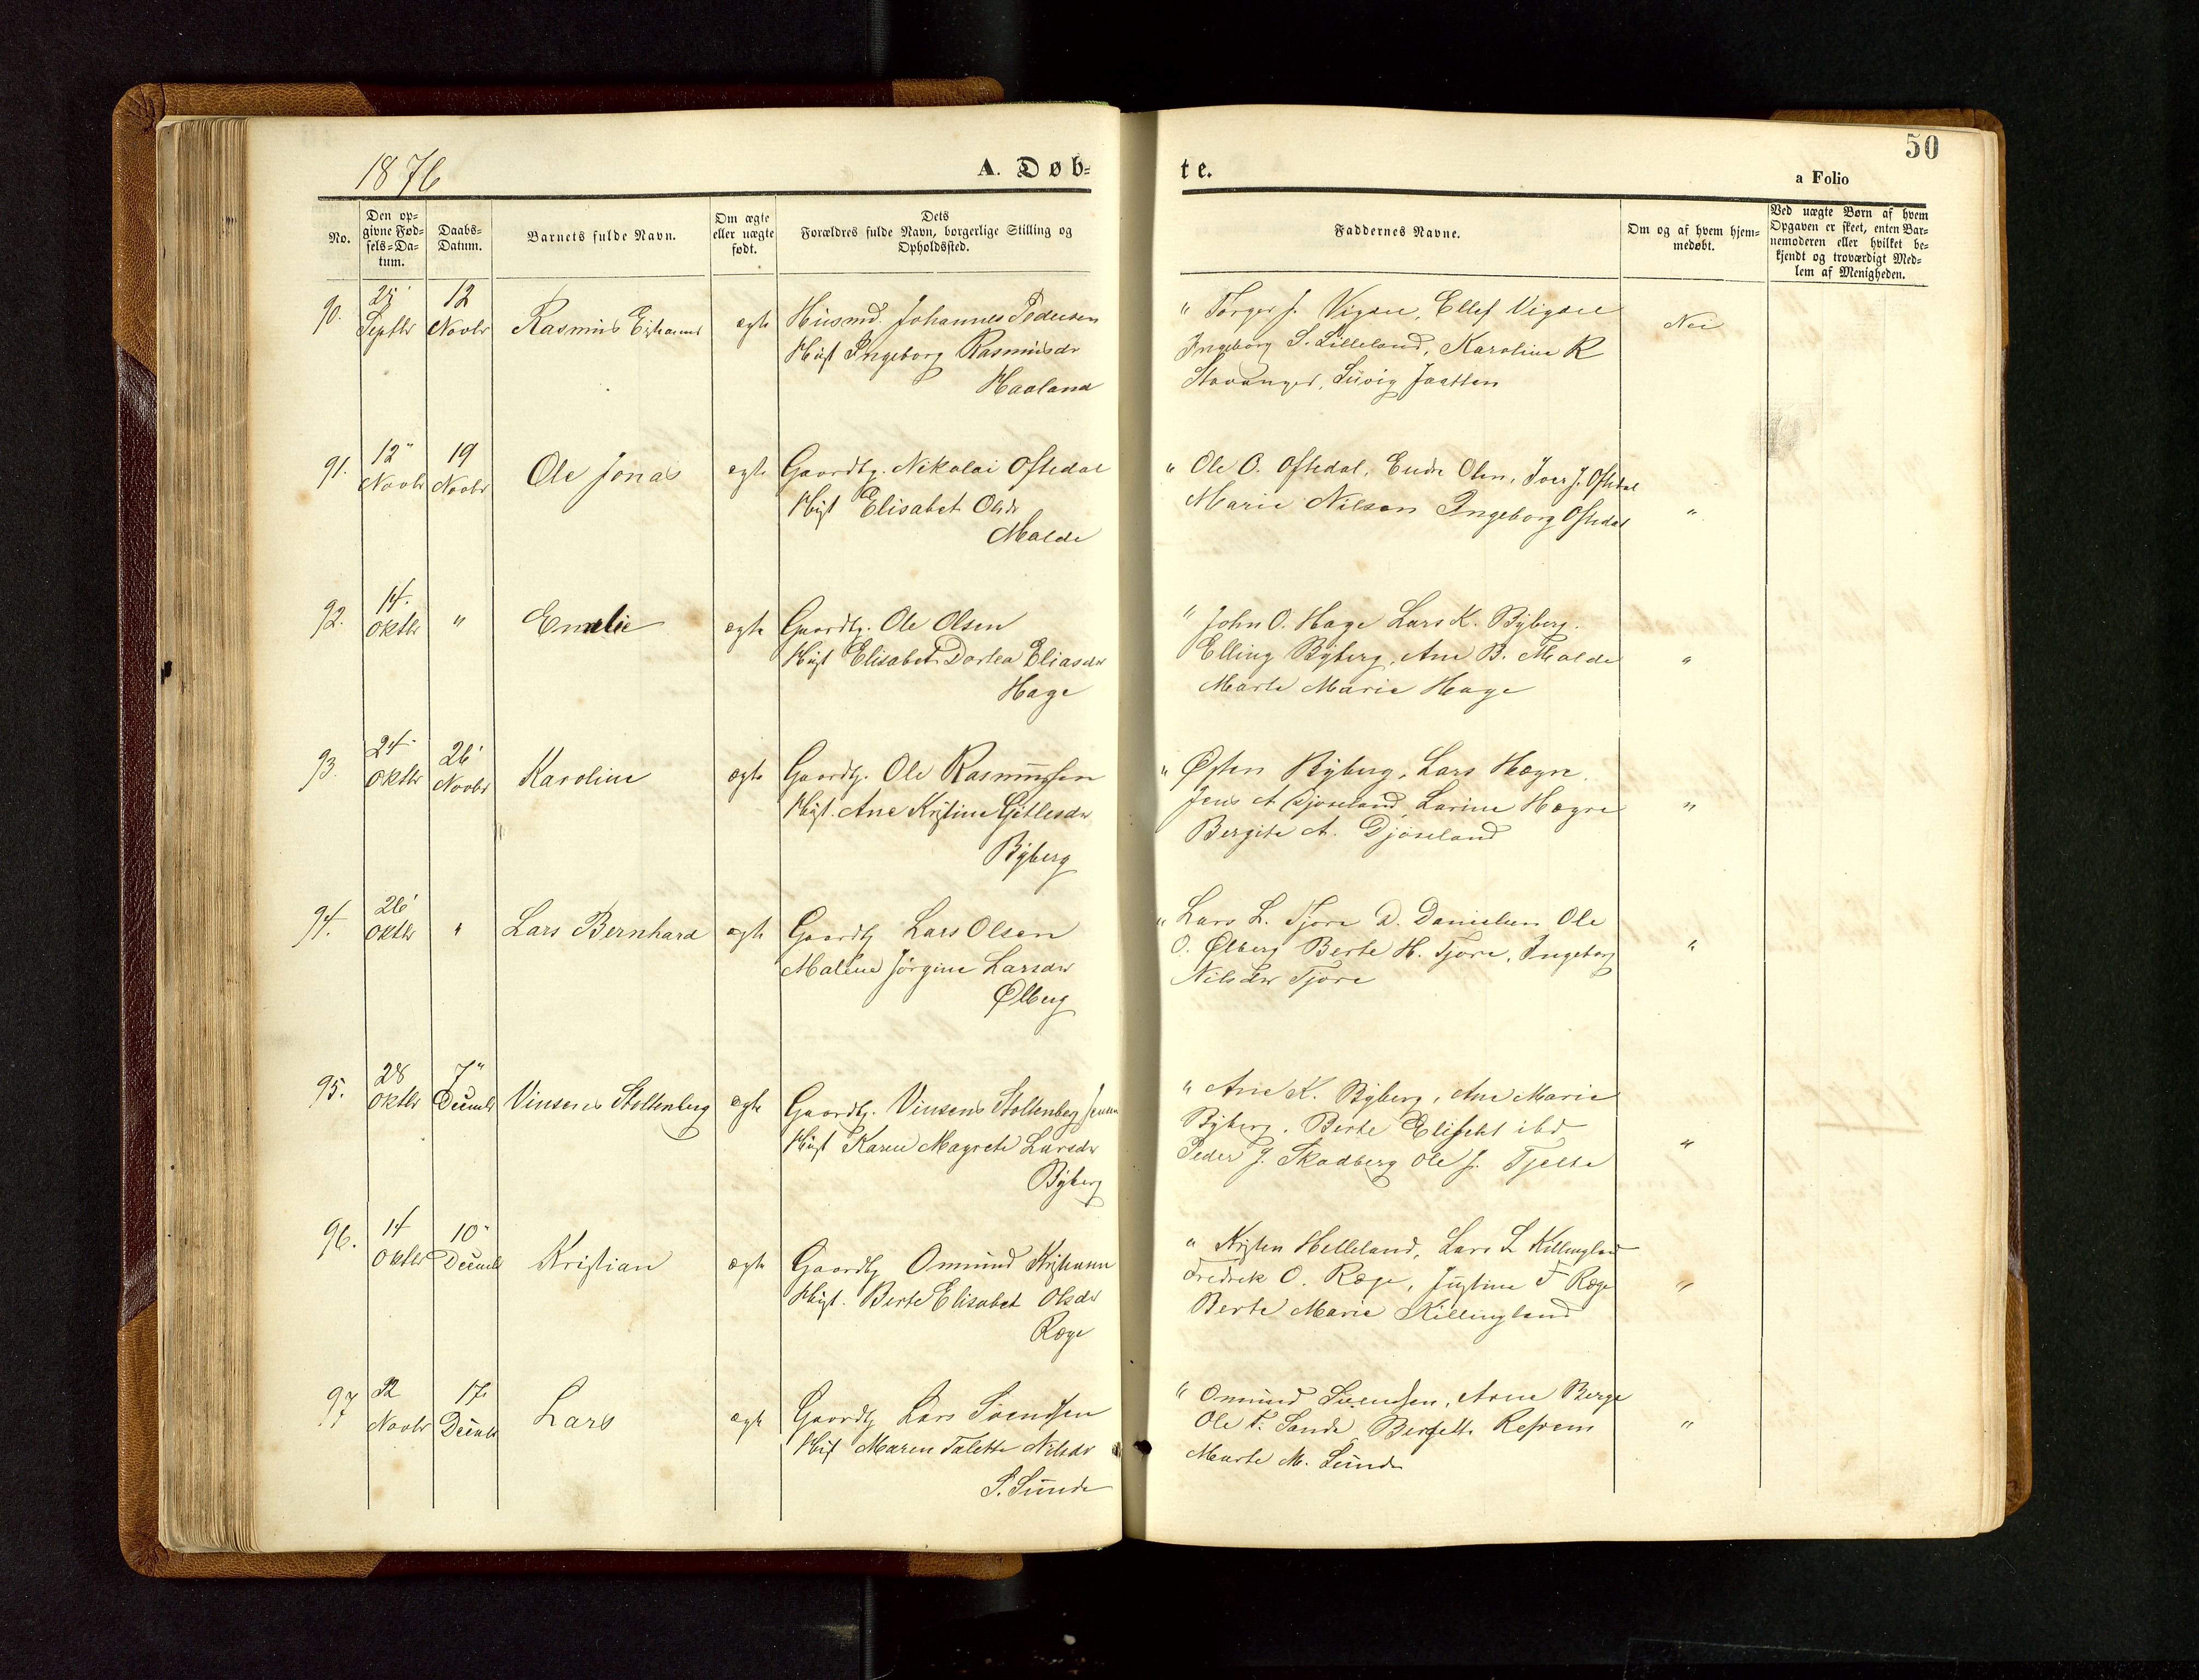 1876
A. Døb-
te.
50
a Folio
No.
Den op-
givne Fød-
sels-Da-
tum.
Daabs-
Datum.
Barnets fulde Navn.
Om ægte
eller uægte
født.
Dets
Forældres fulde Navn, borgerlige Stilling og
Opholdssted.
Faddernes Navne.
Om og af hvem hjem-
medøbt.
Ved uægte Børn af hvem
Opgaven er skeet, enten Bar-
nemoderen eller hvilket be-
kjendt og troværdigt Med-
lem af Menigheden.
90.
Septbr
12
Novbr
Rasmus
ægte
Husmd. Johannes Pedersen
Hust Ingeborg Rasmusdr
Haaland
" Torger J. Vigsre, Ellef Vigsre
Ingeborg S. Lilleland, Karoline R
Stavanger, Sivig Jaatten
Nei
91.
12"
Novbr
19
Novbr
Ole Jonas
ægte
Gaardbr. Nikolai Oftedal
Hust Elisabet Olsdr
Malde
" Ole O. Oftedal, Endre Olsen, Iver J. Oftedal
Marie Nilsen Ingeborg Oftedal
"
92.
14.
Oktbr
"
Emelie
ægte
Gaardbr. Ole Olsen
Hust Elisabet Dortea Eliasdr
Hage
" John O. Hage Lars K. Byberg.
Elling Byberg, Ane B. Malde
Marte Marie Hage
"
93.
24
Oktbr
26
Novbr
Karoline
ægte
Gaardbr. Ole Rasmussen
Hust. Ane Kristine Gitlesdr
Byberg
" Østen Byberg, Lars Hægre.
Jens A. Djoseland, Larine Hægre
Bergite A. Djoseland
"
94.
26
Oktbr
"
Lars Bernhard
ægte
Gaardbr Lars Olsen
Malene Jørgine Larsdr
Ølberg
" Lars L. Tjore D. Danielsen Ole
O. Ølberg Berte H. Tjore, Ingeborg
Nilsdr Tjore
"
95.
28
Oktbr
7"
Decmbr
Vinsens Stoltenberg
ægte
Gaardbr. Vinsens Stoltenberg Jensen
Hust Karen Magrete Larsdr
Byberg
" Arne K. Byberg, Ane Marie
Byberg. Berte Elisabet ibd
Peder J. Skadberg Ole J. Tjelta
"
96.
14
Oktbr
10"
Decmbr
Kristian
ægte
Gaardbr Omund Kristiansen
Hust. Berte Elisabet Olsdr
Røge
" Kristen Helleland, Lars L Killingland
Fredrik O. Røge, Justine F Røge
Berte Marie Killingland
"
97
Novbr
17
Decmbr
Lars
ægte
Gaardbr Lars Svendsen
Hust Maren Talette Nilsdr
S. Sunde
" Omund Svendsen, Arne Berge
Ole T. Sande Bergette Refsnes
Marte M. Sunde
"